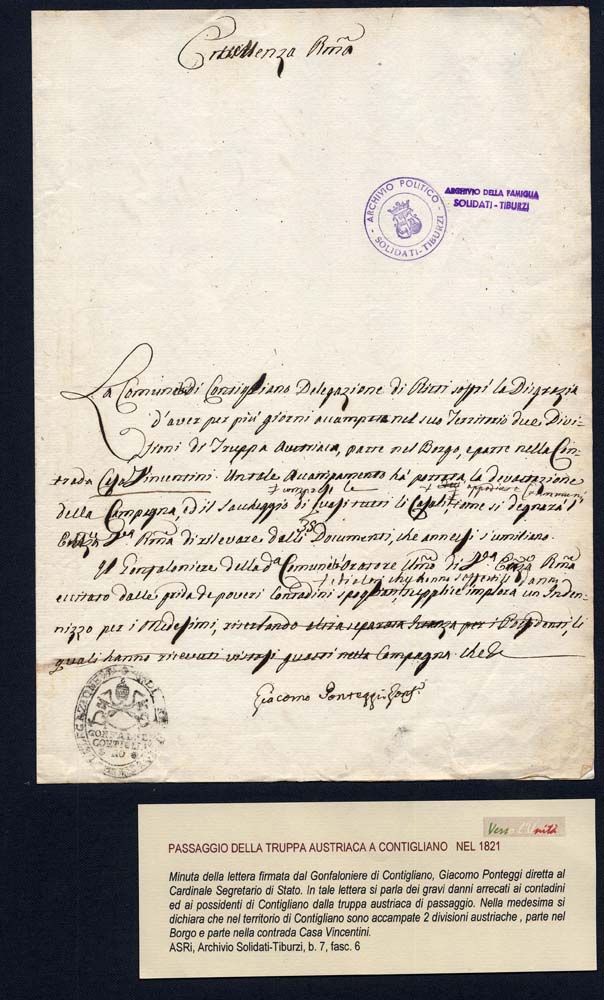 Eccellenza Rma
ARCHIVIO POLITICO
SOLIDATI-TIBURZI
ARCHIVIO DELLA FAMIGLIA
SOLIDATI - TIBURZI
La Comune di Contigliano Delegazione di Rieti soffrì la Disgrazia
d'aver per più giorni accampata nel suo Territorio due Divi-
sioni di Truppa Austriaca, parte nel Borgo, e parte nella Con-
trada Casa Vincentini. Un tale Accampamento ha portata la devastazione
compresi le
della Campagna, ed il Saccheggio di quasi tutti li Casali, come si degnarà
38
Rma di rilevare dalli Documenti, che annessi s'umiliano.
Il Gonfaloniere della da Comune Oratore Umo di Rma
danni
eccitato dalle grida de poveri Contadini spogliati, supplice implora un Inden-
nizzo per i Medesimi, riserbando altra separata Istanza per i Possidenti, li
quali hanno ricevuti guasti nella Campagna. Che
Giacomo Ponteggi Gonfe
GONFALONIERE
CONTIGLIA
NO
Verso l'Unità
PASSAGGIO DELLA TRUPPA AUSTRIACA A CONTIGLIANO NEL 1821
Minuta della lettera firmata dal Gonfaloniere di Contigliano, Giacomo Ponteggi diretta al
Cardinale Segretario di Stato. In tale lettera si parla dei gravi danni arrecati ai contadini
ed ai possidenti di Contigliano dalla truppa austriaca di passaggio. Nella medesima si
dichiara che nel territorio di Contigliano sono accampate 2 divisioni austriache , parte nel
Borgo e parte nella contrada Casa Vincentini.
ASRi, Archivio Solidati-Tiburzi, b. 7, fasc. 6